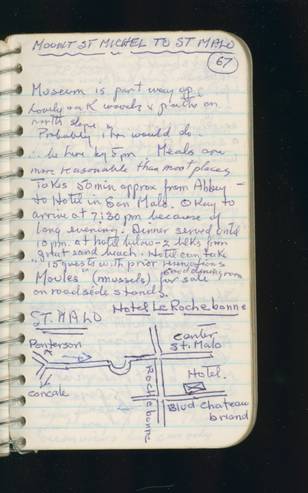 MOUNT ST MICHEL TO ST MALO
67
Museum is part way up
Lovely oak woods & paths on
north slope.
Probably 1 hr would do.
∴ be here by 5 pm Meals are
more reasonable than most places
Takes 50 min approx from Abbey –
to Hotel in San Malo. Okay to
arrive at 7:30 pm because of
long evening. Dinner served until
10 pm. at hotel below – 2 blks from
great sand beach. Hotel can take
15 guests with prior reservations
Good dining room
Moules (mussels) for sale
on roadside stands.
Hotel Le Rochebonne
ST. MALO
Ponterson
center
St. Malo
Hotel.
Cancale
Rochebonne
Blvd Chateau
briand